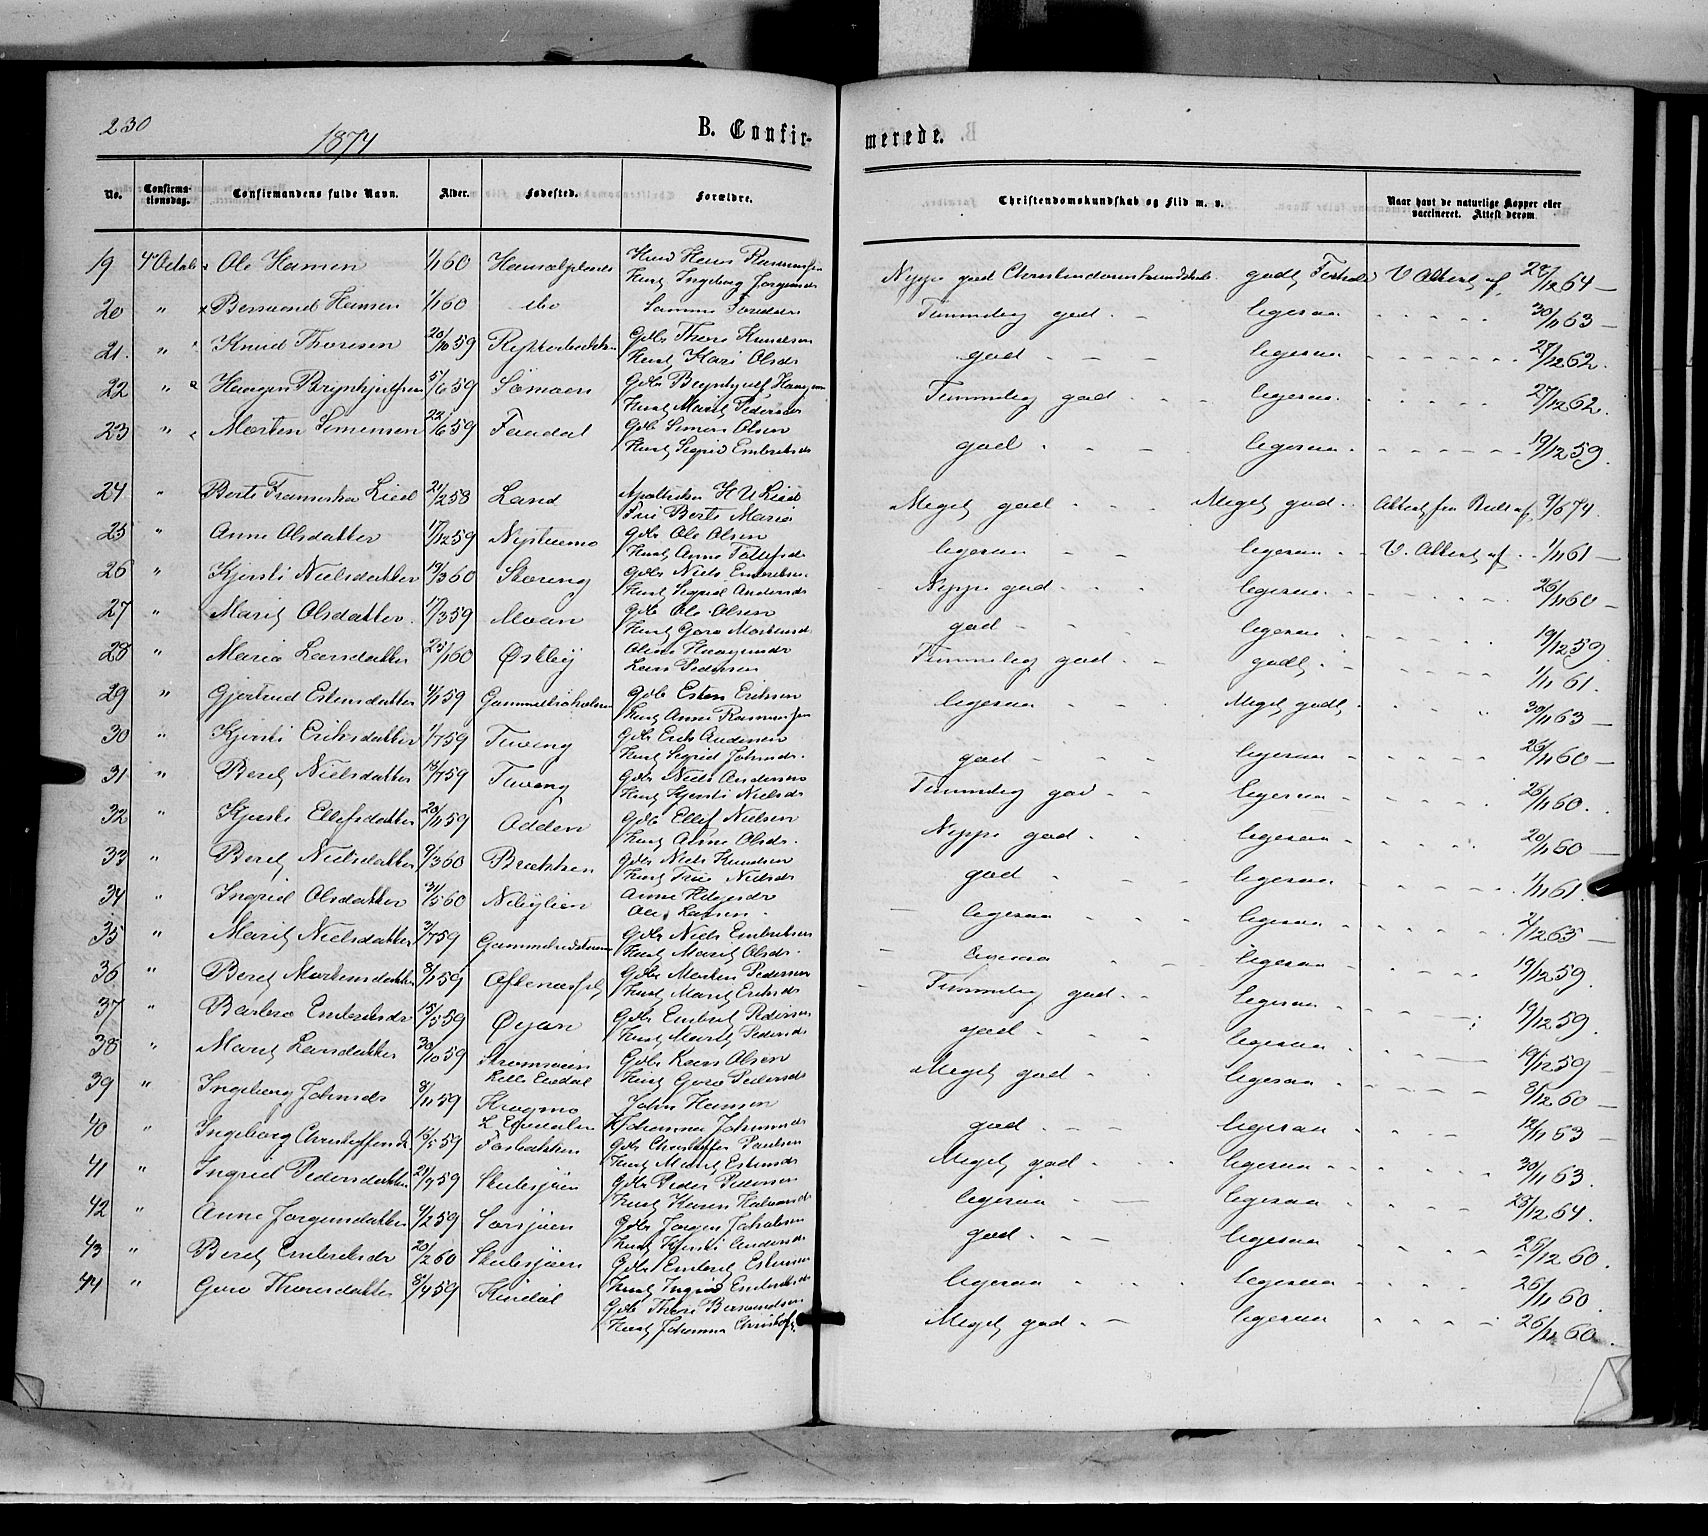 230
1874
B. Confir-
merede.
No.
Confirma-
tionsdag.
Confirmandens fulde Navn.
Alder.
Fødested.
Forældre.
Christendomskundskab og Flid m. v.
Naar havt de naturlige Kopper eller
vaccineret. Attest derom.
19 4 Octob Ole Hansen 1/1 60 Husm Hans Rasmussen
Hust Ingeborg Jørgensd
Neppe god Christendomskundskab godt Forhold V. Attest af 28/12 64
20 " Bersvend Hansen 1/1 60 ibo Samme Forældre
Temmelig god - ligesaa 30/11 63
21. " Knud Thoresen 20/10 59 Gdbr Thore Knudsen
Hust Kari Olsdr
god - ligesaa 27/12 62.
22 " Haagen Brynhjulfsen 5/6 59 Sømoen Gdbr Brynhjulf Haagensen
Hust Marit Pedersdr
Temmelig god - ligesaa 27/12 62.
23 " Morten Simensen 22/6 59 Faadal Gdbr Simen Olsen
Hust Sigrid Embretsdr
god - ligesaa 19/12 59.
24 " Berte Franciska Lied 21/2 58 Land Apotheker H U Lied
Fru Berte Maria
Meget god - Meget god. Attest fra 9/6 74.
25 " Anne Olsdatter 17/12 59 Nystuemo Gdbr Ole Olsen
Hust Anne Tollefsdr
ligesaa - ligesaa V. Attest af 1/11 61
26 " Kjersti Nielsdatter 19/3 60 Støreng Gdbr Niels Embretsen
Hust Sigrid Andersdr
Neppe god - ligesaa 26/11 60
27 " Marit Olsdatter 17/3 59 Moan Gdbr Ole Olsen
Hust Goro Mortensd
god - ligesaa 19/12 59.
28 " Maria Larsdatter 25/1 60 Østby Oline Haagensdr
Lars Pedersen
Temmelig god - godt, 1/11 61.
29 " Gjertrud Estensdatter 4/1 59 Gdbr Esten Eriksen
Hust Anne Rasmusdr
ligesaa - Meget godt 30/11 63
30 " Kjersti Eriksdatter 1/7 59 Tuveng Gdbr Erik Andersen
Hust Sigrid Johnsdr.
god - ligesaa 26/11 60
31 " Beret Nielsdatter 13/7 59 Tuveng Gdbr Niels Andersen
Hust Kjersti Nielsdr
Temmelig god - ligesaa 26/11 60.
32 " Kjersti Ellefsdatter 20/11 59 Odden Gdbr Ellef Nielsen
Hust Anne Olsdr.
Neppe god - ligesaa 20/11 60
33 " Beret Nielsdatter 9/3 60 Brækken Gdbr Niels Knudsen
Hust Nielsdr
god - ligesaa 1/11 61.
34 " Ingrid Olsdatter 31/5 60 Nibylien Anne Helgesdr
Ole Larsen.
ligesaa - ligesaa 2/12 65
35 " Marit Nielsdatter 3/7 59 Gdbr Niels Embretsen
Hust Marit Olsdr.
ligesaa - ligesaa 19/12 59.
36 " Beret Mortensdatter 8/1 59 Gdbr Morten Pedersen
Hust Marit Eriksdr
Temmelig god - ligesaa 19/12 59.
37 " Barbro Embretsdr 15/5 59 Øyan Gdbr Embret Pedersen
Hust Marit Pedersdr
god - ligesaa 19/12 59
38 " Marit Larsdatter 30/10 59 Strømmoen
Lille Elvdal
Gdbr Lars Olsen
Hust Goro Pedersdr
Meget god - ligesaa 3/12 60
39 " Ingeborg Johnsdr 8/11 59 Krogmo John Hansen
Johanna Johnsdr
god - ligesaa 12/11 53
40 " Ingeborg Christoffersd 15/5 59 Gdbr Christoffer Paulsen
Hust Marit Estensdr
Meget god - ligesaa 30/11 63.
41 " Ingrid Pedersdatter 21/9 59 Stubsjøen Gdbr Peder Pedersen
Hust Karen Halvorsdr
ligesaa - ligesaa 23/12 64.
42 " Anne Jørgensdatter 4/2 59 Sørsjøen Gdbr Jørgen Jakobsen
Hust Kjersti Andersdr
god - ligesaa 26/12 60.
43 " Beret Embretsdr 20/2 60 Stubsjøen Gdbr Embret Estensen
Hust Ingrid Embretsdr
ligesaa - ligesaa 26/11 60.
44 " Goro Thoresdatter 8/4 59 Kindal Gdbr Thore Bersvendsen
Hust Johanna Christofsd
Meget god - ligesaa 26/11 60.